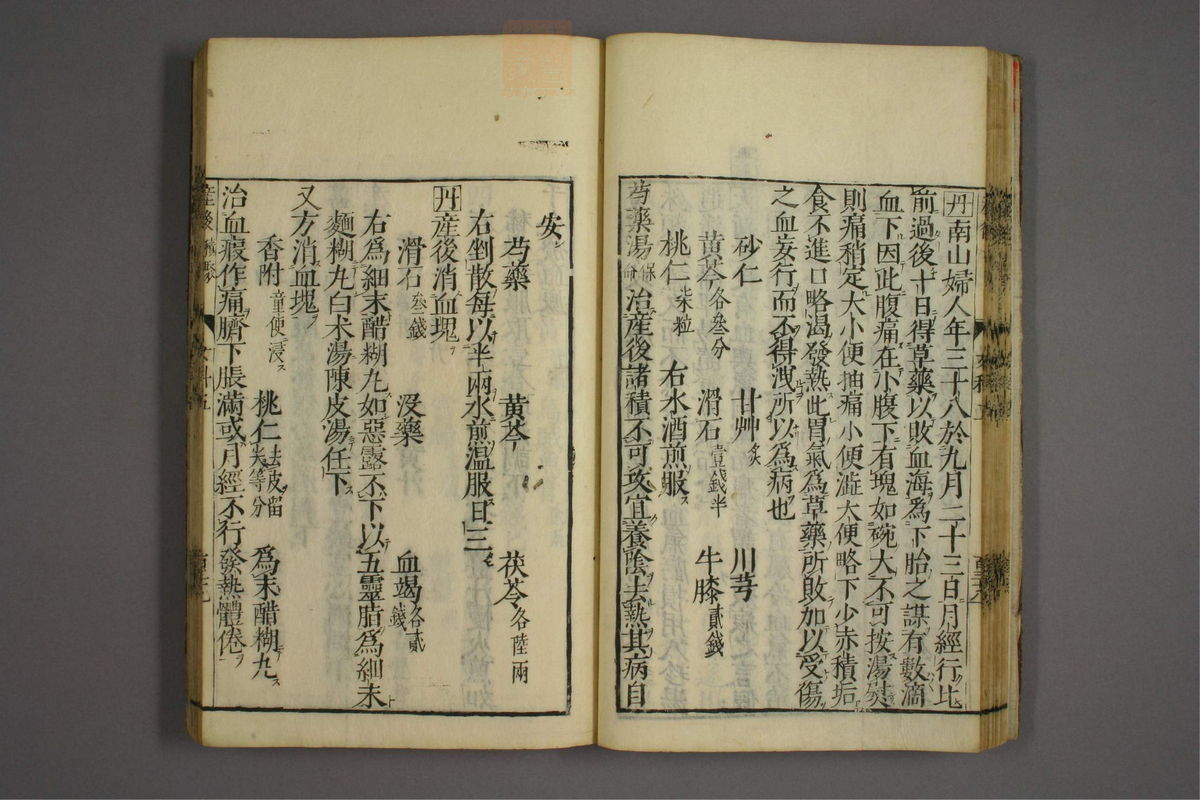 丹南山婦人年三十八於九月二十三日月經行比
前過後十日得草藥以敗血海為下胎之謀有數滴
血下因此腹痛在小腹下有塊如碗大不可按湯熨
則痛稍定大小便抽痛小便澁大便略下少赤積垢
食不進口略渴發熱此胃氣為草藥所敗加以受傷
之血妄行而不得洩所以為病也
砂仁 甘艸炙 川芎
黄芩各叄分 滑石壹錢半 牛膝貳錢
桃仁柒粒 右水酒煎服
芍藥湯保命治産後諸積不可攻宜養陰去熱其病自
安
芍藥 黄芩 茯苓各陸兩
右剉散每以半兩水煎温服日三
丹産後消血塊
滑石叄錢 没藥 血竭各貳錢
右為細末醋糊丸如惡露不下以五靈脂為細末
麵糊丸白朮湯陳皮湯任下
又方消血塊
香附童便浸 桃仁去皮留尖等分 為末醋糊丸
治血瘕作痛臍下脹滿或月經不行發熱體倦
産後